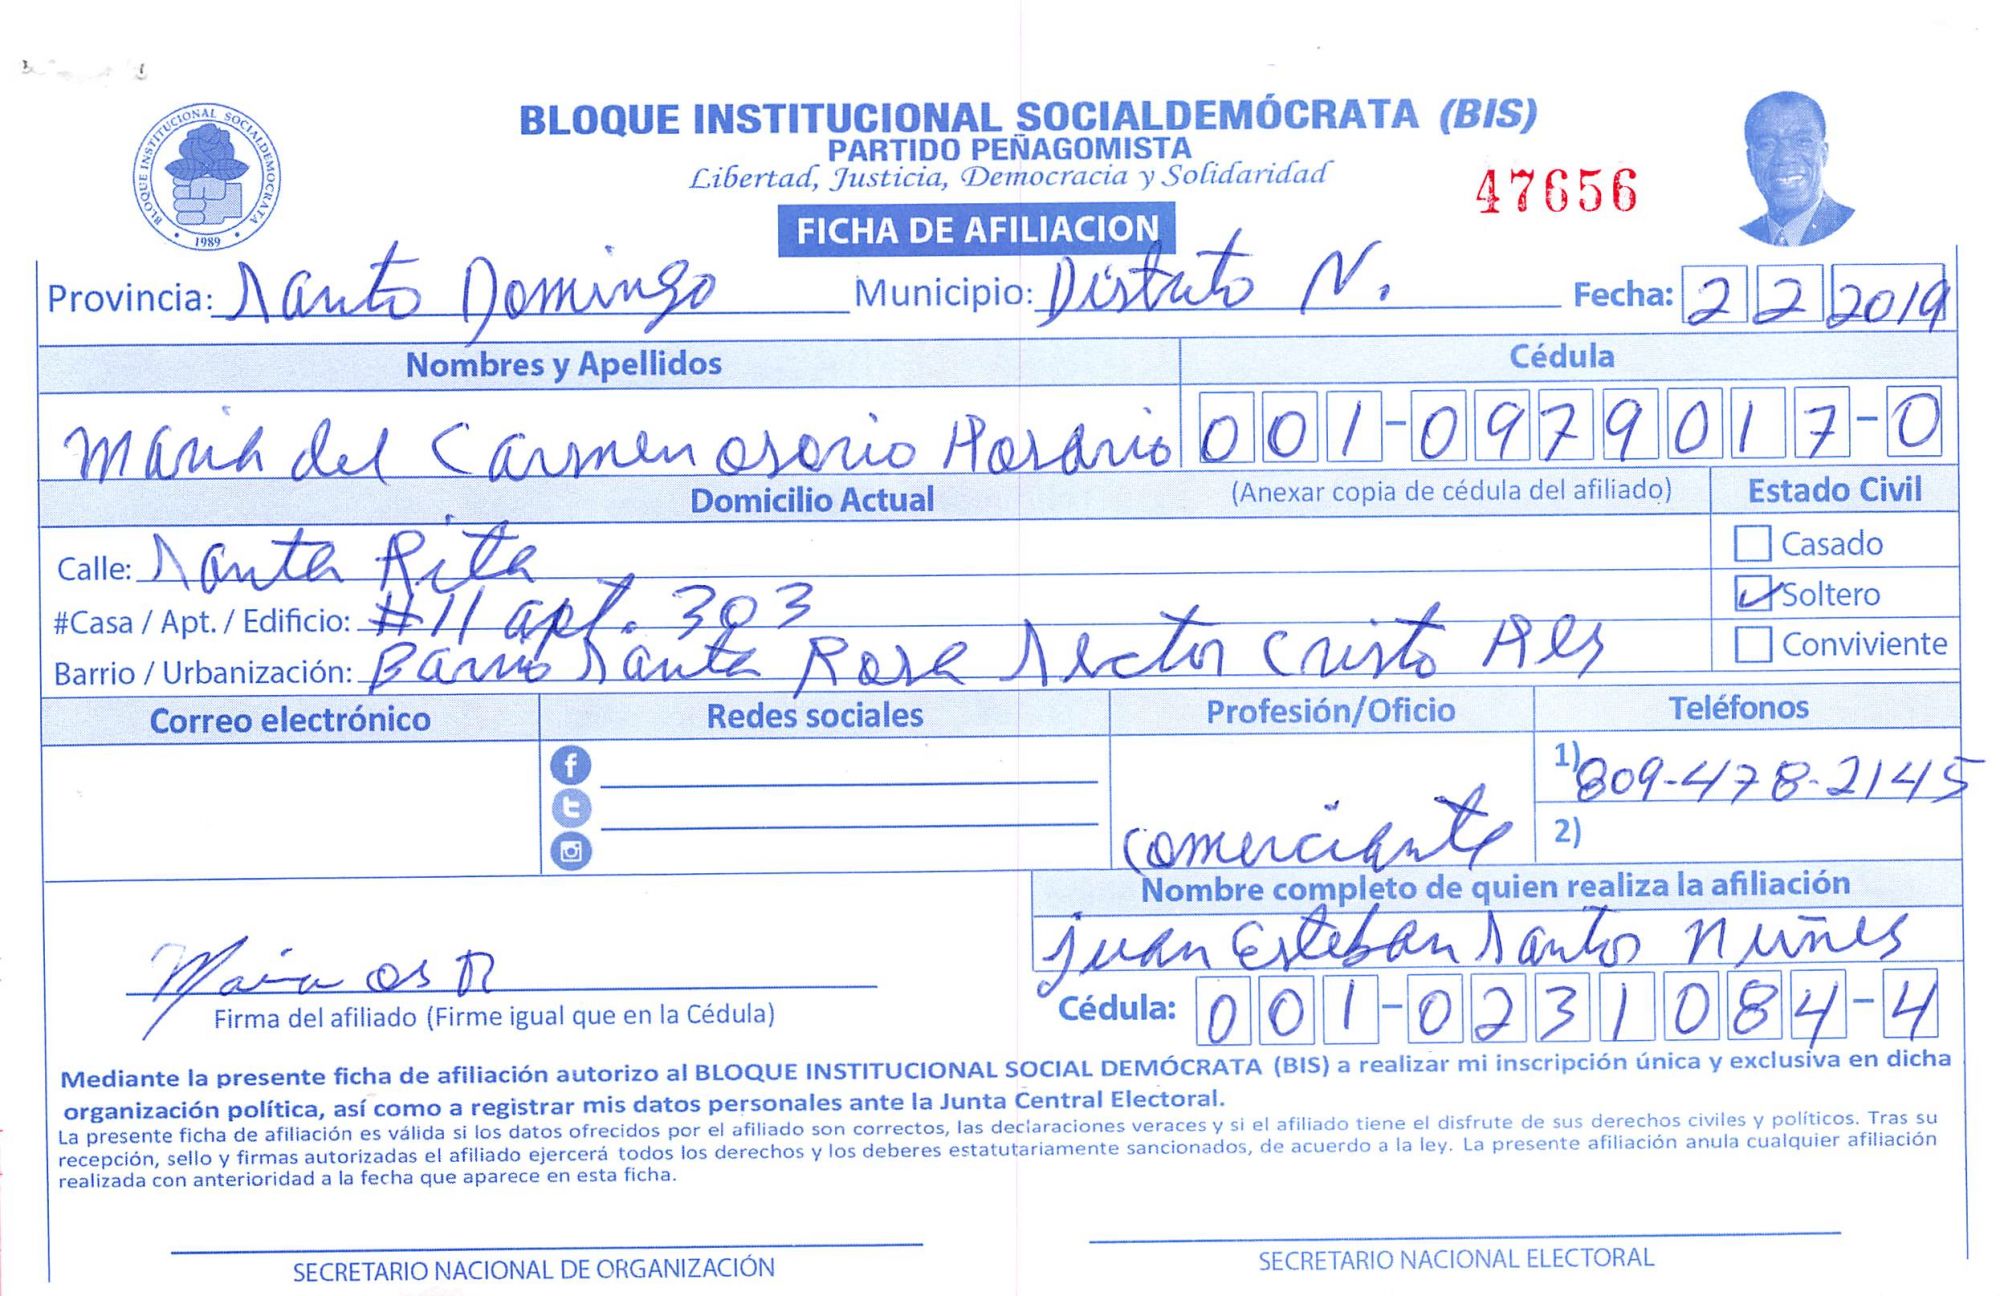 BLOQUE INSTITUCIONAL SOCIALDEMOCRATA
1989
BLOQUE INSTITUCIONAL SOCIALDEMÓCRATA (BIS)
PARTIDO PEÑAGOMISTA
Libertad, Justicia, Democracia y Solidaridad
47656
FICHA DE AFILIACION
Provincia: Santo Domingo Municipio: Distrito N. Fecha: 2 2 2019
Nombres y Apellidos Cédula
Maria del Carmen osorio Rosario 001-0979017-0
Domicilio Actual (Anexar copia de cédula del afiliado) Estado Civil
Calle: Santa Rita Casado
#Casa / Apt. / Edificio: #11 apt. 303 Soltero
Barrio / Urbanización: Barrio Santa Rosa Sector Cristo Rey Conviviente
Correo electrónico Redes sociales Profesión/Oficio Teléfonos
1) 809-478-2145
comerciante 2)
Nombre completo de quien realiza la afiliación
Juan Esteban Santos Nuñes
Maria os R
Firma del afiliado (Firme igual que en la Cédula) Cédula: 001-0231084-4
Mediante la presente ficha de afiliación autorizo al BLOQUE INSTITUCIONAL SOCIAL DEMÓCRATA (BIS) a realizar mi inscripción única y exclusiva en dicha
organización política, así como a registrar mis datos personales ante la Junta Central Electoral.
La presente ficha de afiliación es válida si los datos ofrecidos por el afiliado son correctos, las declaraciones veraces y si el afiliado tiene el disfrute de sus derechos civiles y políticos. Tras su
recepción, sello y firmas autorizadas el afiliado ejercerá todos los derechos y los deberes estatutariamente sancionados, de acuerdo a la ley. La presente afiliación anula cualquier afiliación
realizada con anterioridad a la fecha que aparece en esta ficha.
SECRETARIO NACIONAL DE ORGANIZACIÓN SECRETARIO NACIONAL ELECTORAL